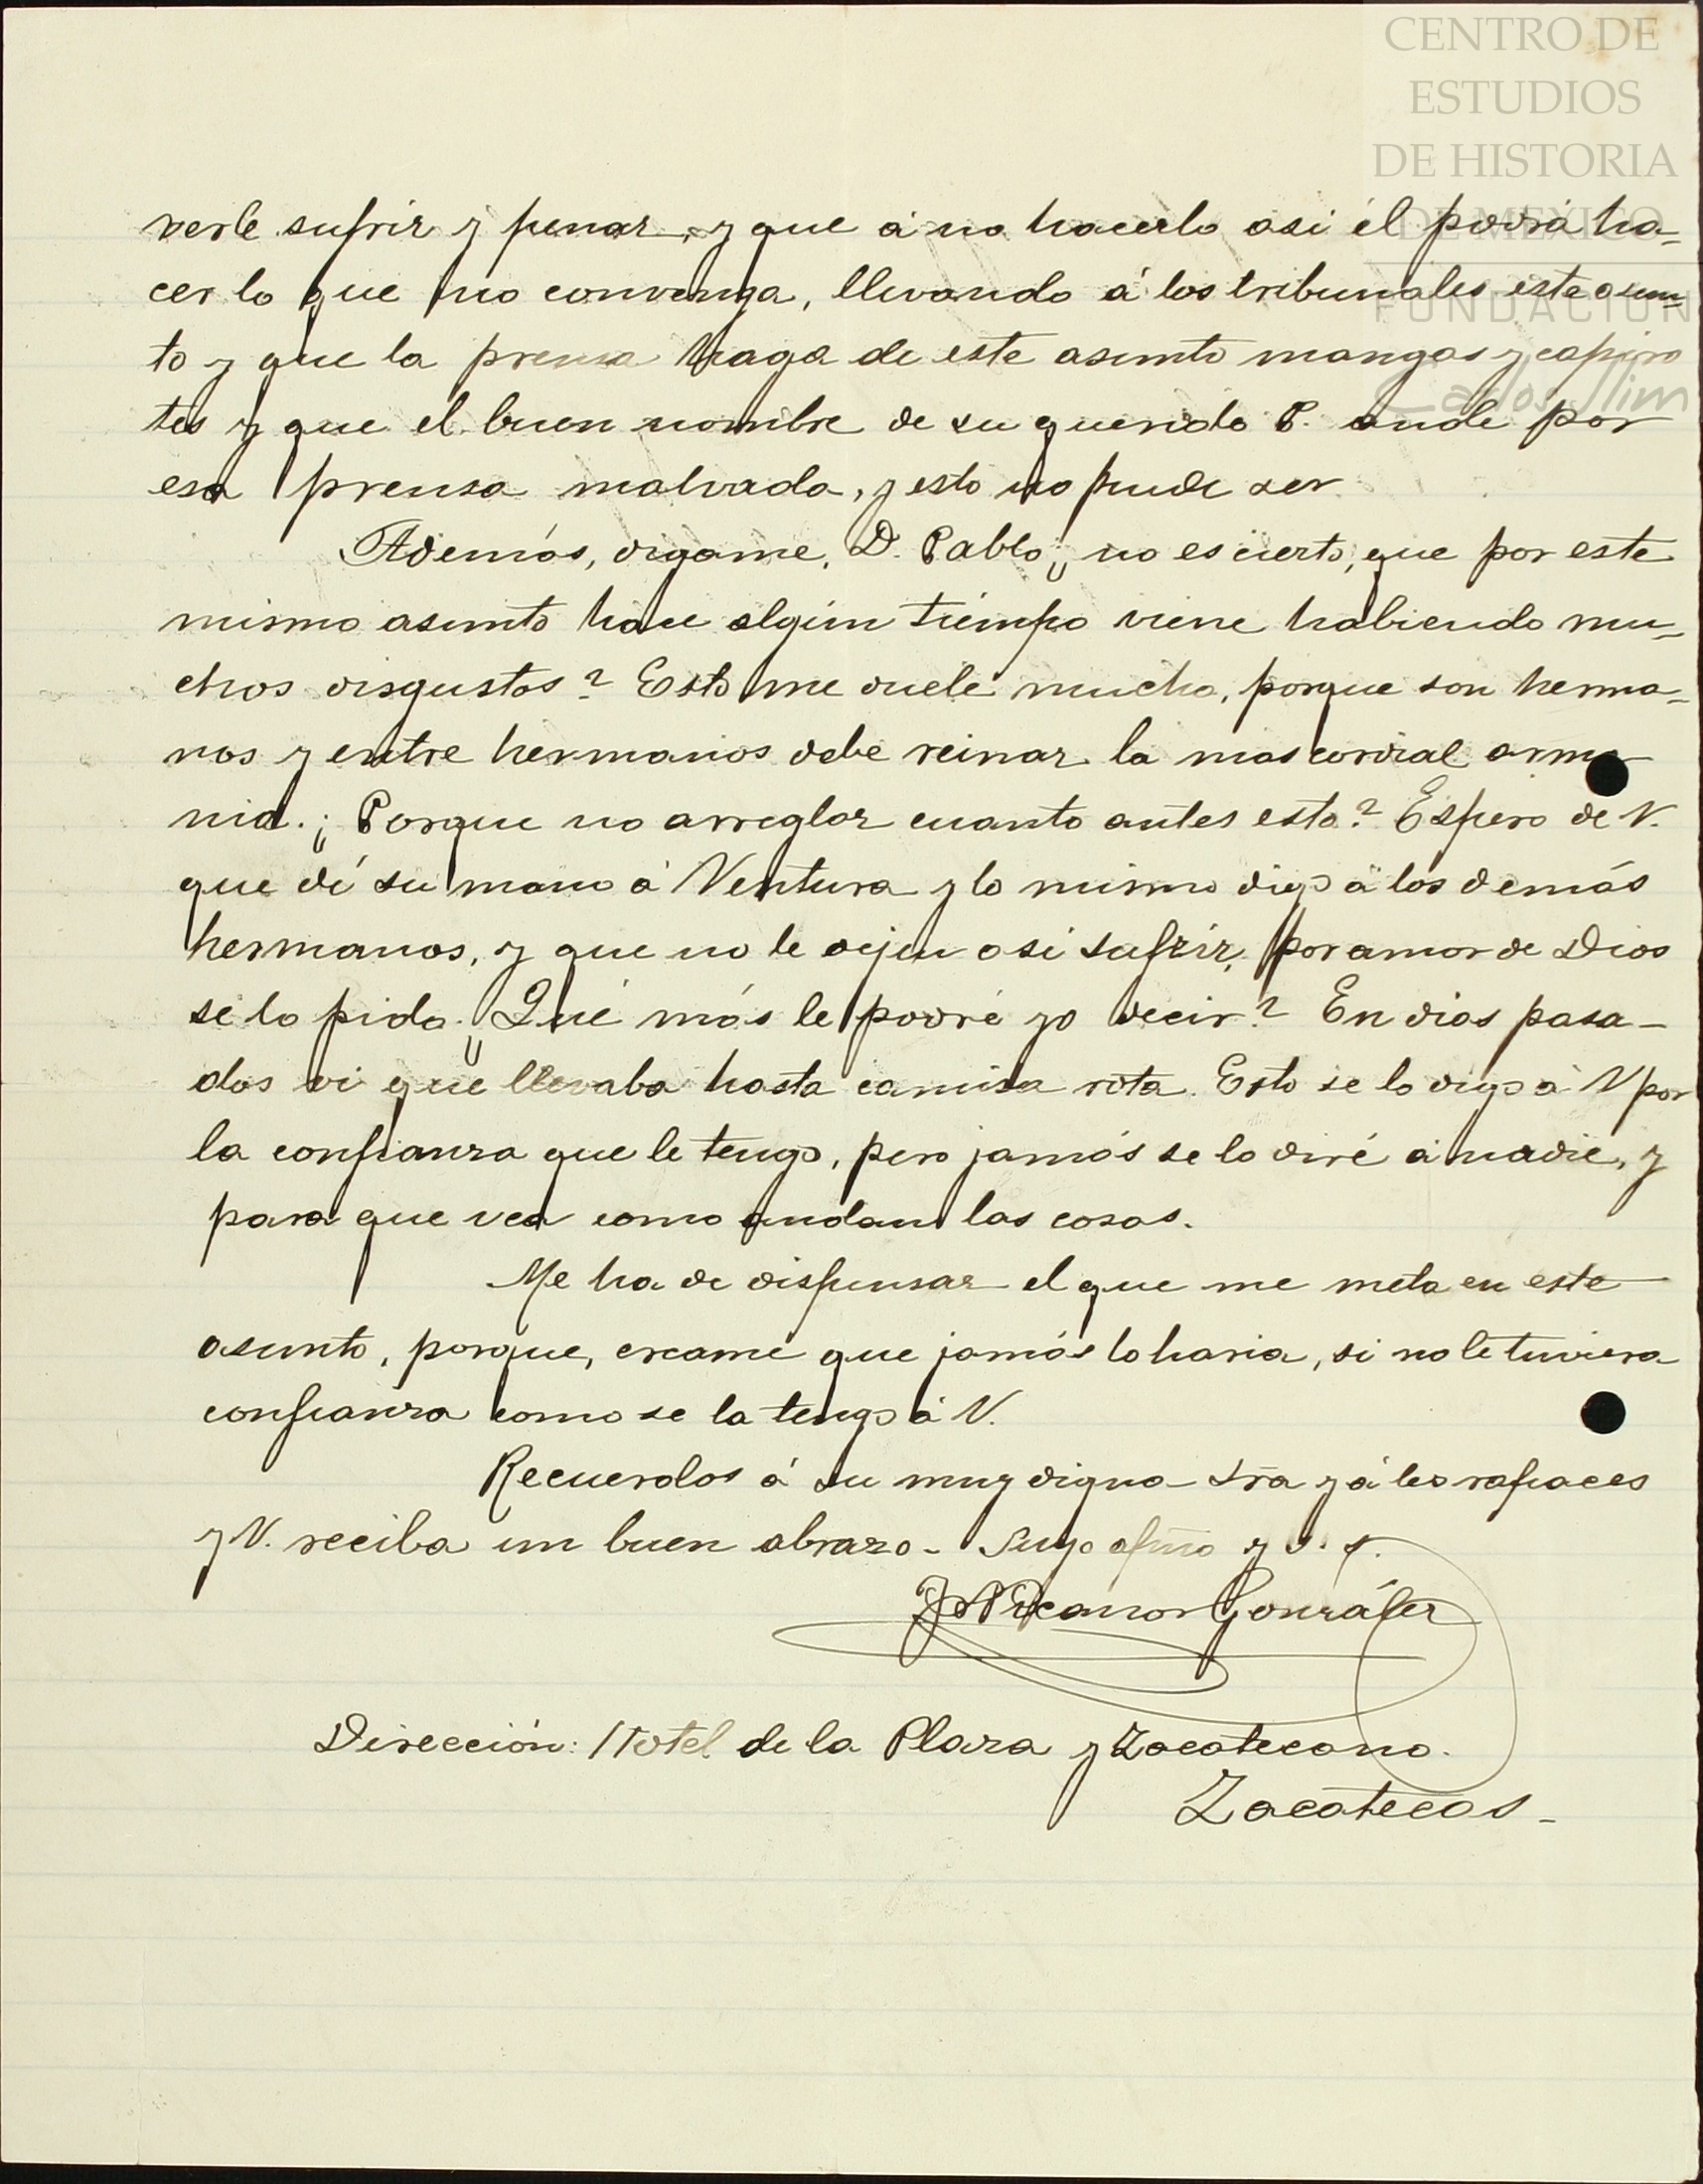 CENTRO DE
ESTUDIOS
DE HISTORIA
DE MÉXICO
FUNDACIÓN
Carlos Slim
verle sufrir y penar, y que á no hacerlo asi él podrá ha-
cer lo que no convenga, llevando á los tribunales este asun-
to y que la prensa haga de este asunto mangas y capiro
tes y que el buen nombre de su querido P. ande por
esa prensa malvada, y esto no puede ser.
Además, digame, D. Pablo ¿no es cierto, que por este
mismo asunto hace algún tiempo viene habiendo mu-
chos disgustos? Esto me duele mucho, porque son herma-
nos y entre hermanos debe reinar la mas cordial armo
nia. ¿Porque no arreglar cuanto antes esto? Espero de V.
que dé su mano á Ventura y lo mismo digo á los demás
hermanos, y que no le dejen asi sufrir, por amor de Dios
se lo pido. ¿Qué más le podré yo decir? En dias pasa-
dos vi que llevaba hasta camisa rota. Esto se lo digo á V por
la confianza que le tengo, pero jamás se lo diré á nadie, y
para que vea como andan las cosas.
Me ha de dispensar el que me meta en este
asunto, porque, creame que jamás lo haria, si no le tuviera
confianza como se la tengo á V.
Recuerdos á su muy digna Sra y á los rapaces
y V. reciba un buen abrazo. Suyo afmo y s. s.
Nicanor González
Dirección: Hotel de la Plaza y Zacatecano.
Zacatecas-